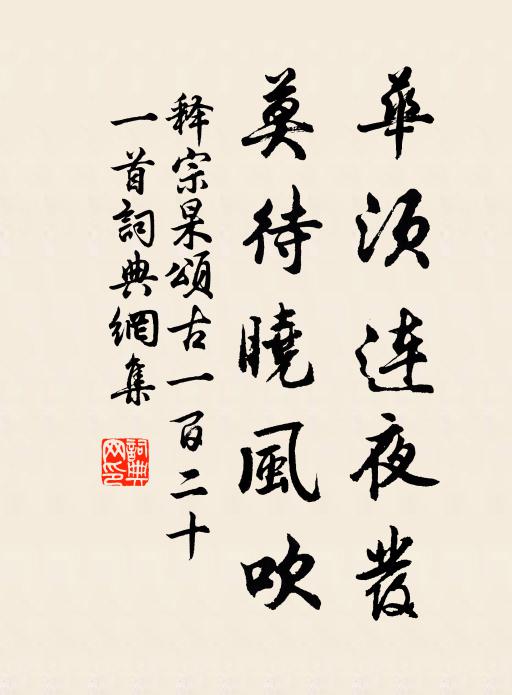 華須連夜發
莫待曉風吹
释宗杲頌古一百二十
一首詞典網集
詞典
网印